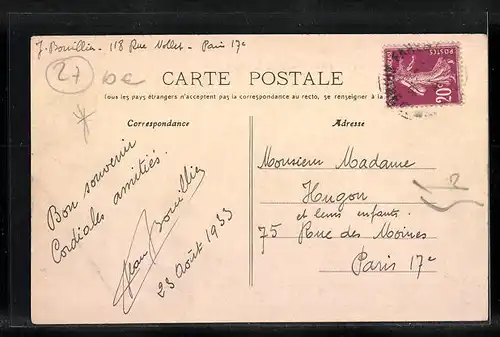 J. Bouillie - 118 Rue Nollet - Paris 17e
27
CARTE POSTALE
Tous les pays étrangers n'acceptent pas la correspondance au recto, se renseigner à la
POSTES
20c
Correspondance
Adresse
Bon souvenir
Cordiales amitiés.
Jean Bouillie
23 Août 1933
Monsieur Madame
Hugon
et leurs enfants.
75 Rue des Moines
Paris 17e